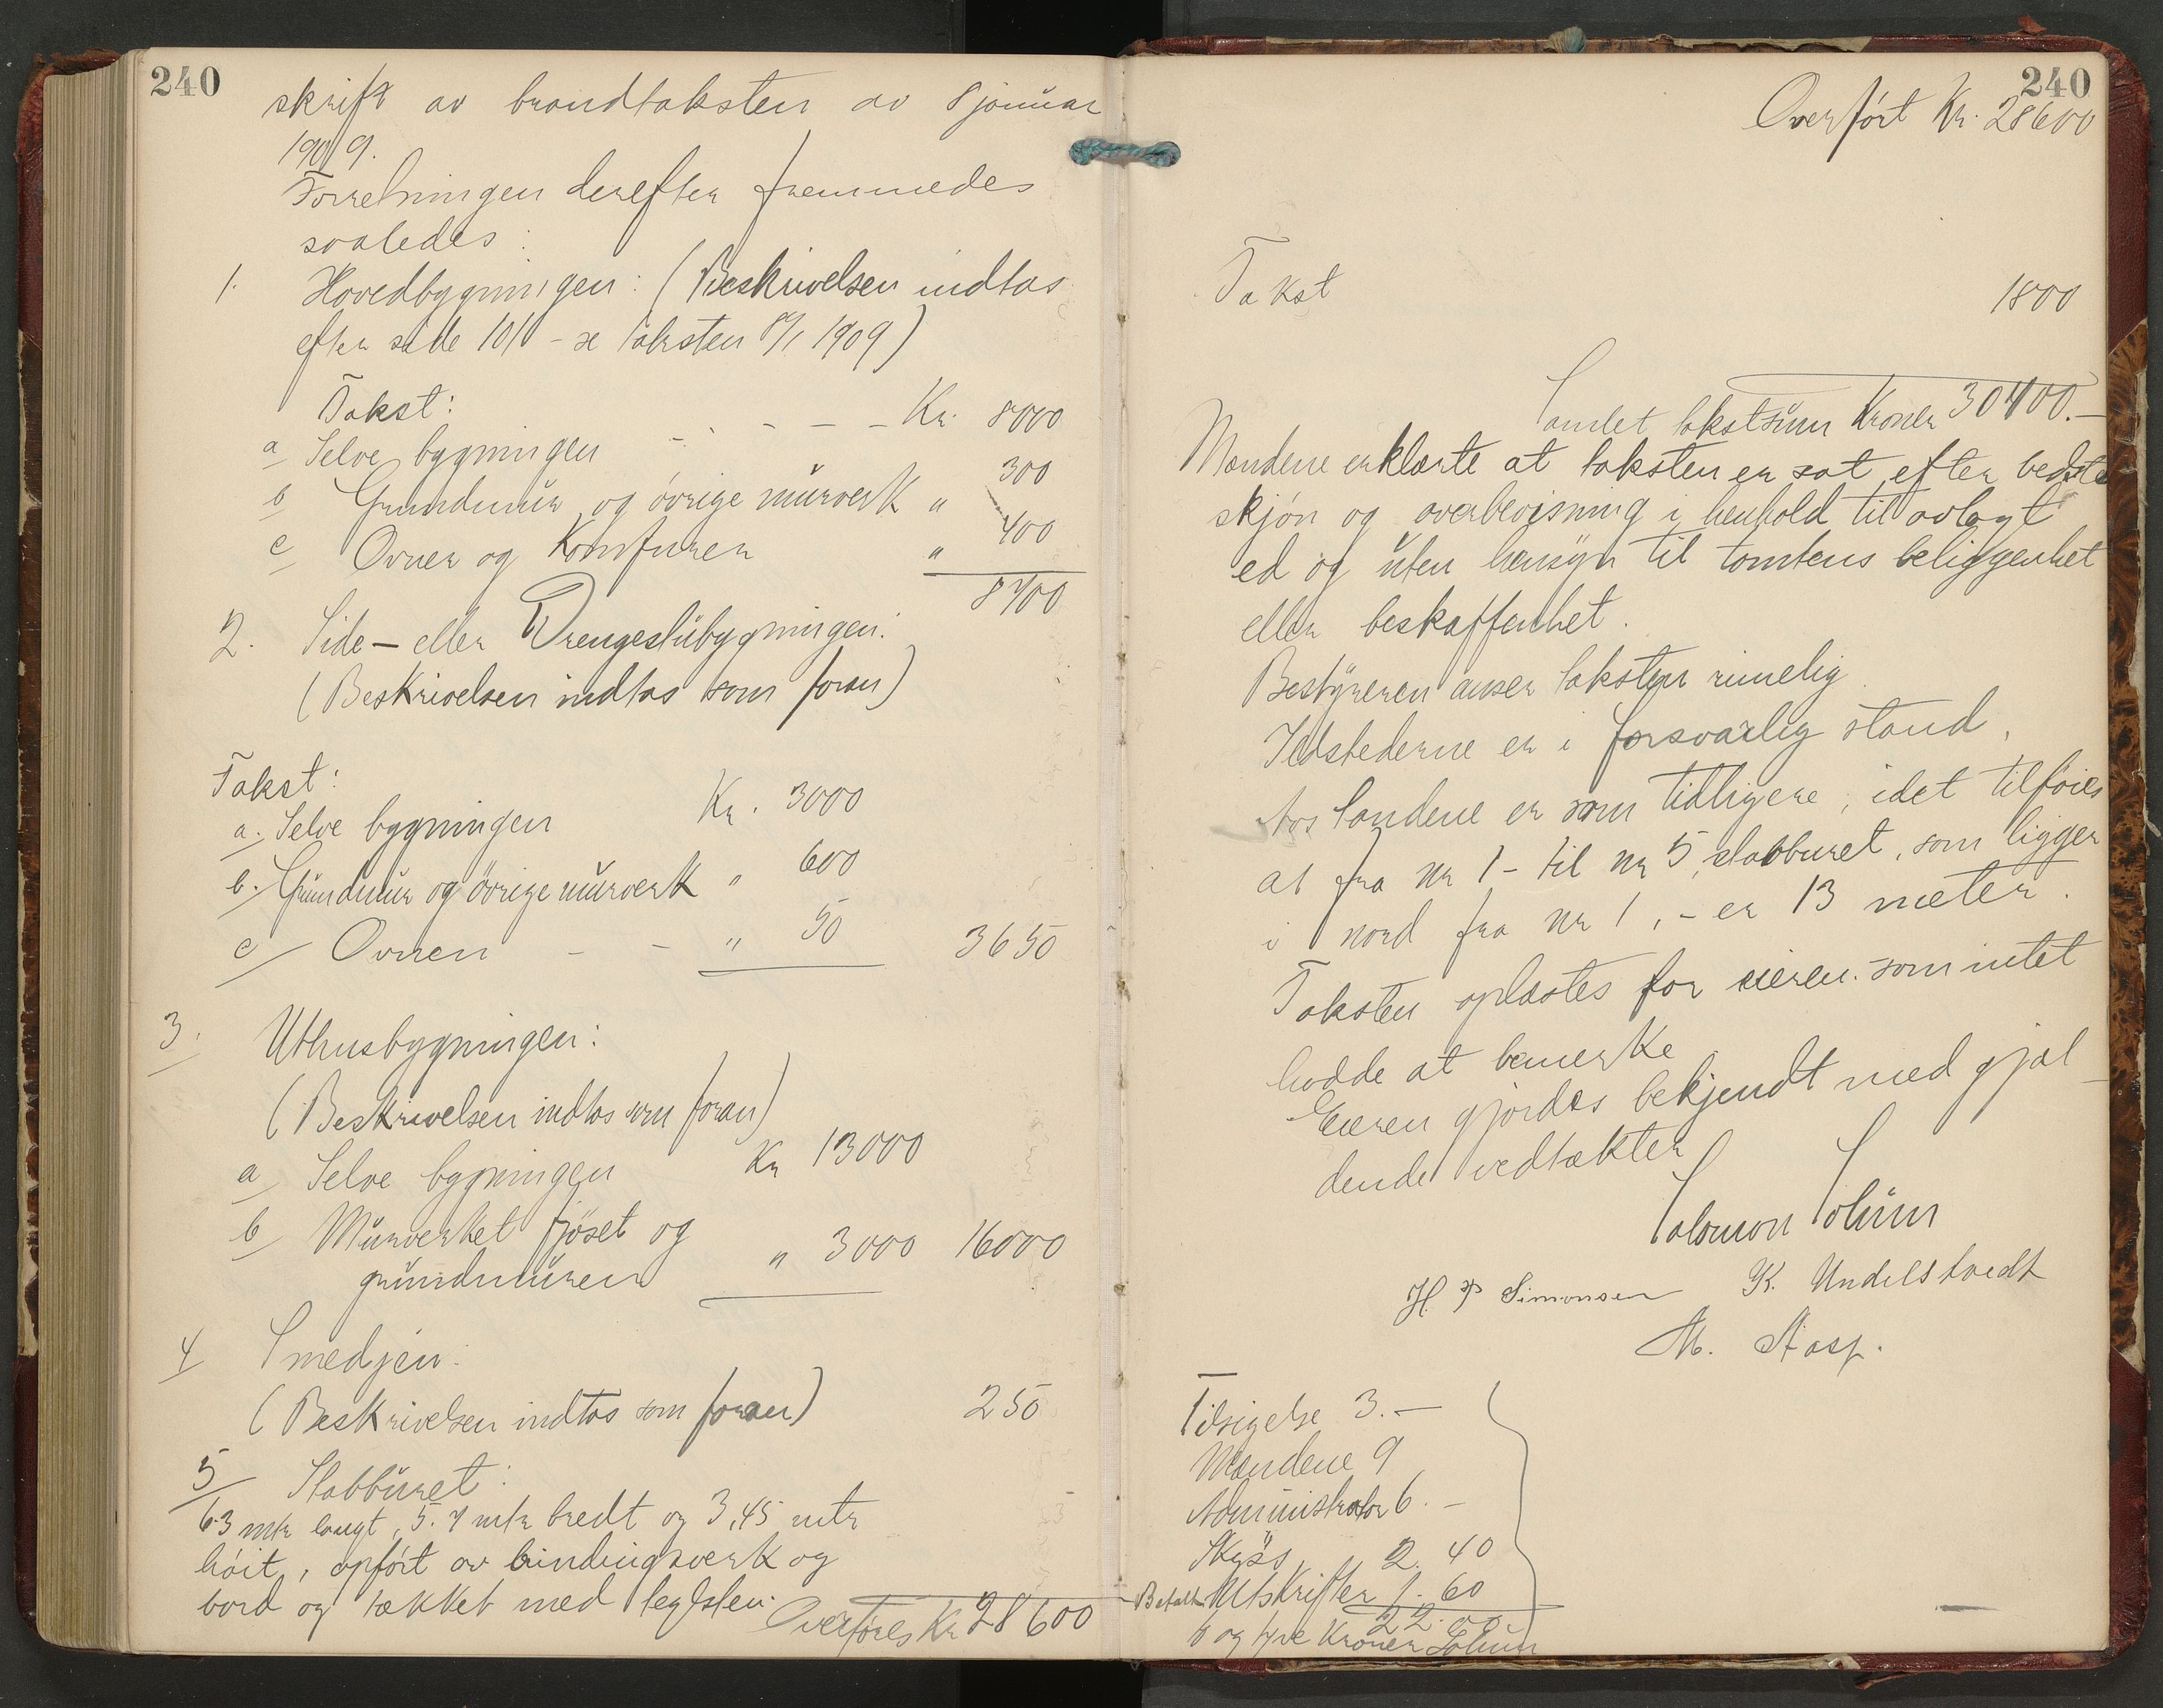 240
skrift av brandtaksten av 8 januar
1909.
Forretningen derefter fremmedes
saaledes:
1. Hovedbygningen: (Beskrivelsen indtas
efter side 101 - se taksten 8/1 1909)
Takst:
a Selve bygningen - - - - - Kr. 8000
b Grundmur og övrige murverk " 300
c Ovner og Komfurer " 400
8700
2. Side - eller Drengestubygningen:
(Beskrivelsen indtas som foran)
Takst:
a. Selve bygningen Kr. 3000
b. Grundmur og övrige murverk " 600
c Ovnen - - " 50 3650
3. Uthusbygningen:
(Beskrivelsen indtas som foran)
a Selve bygningen Kr 13000
b Murverket fjöset og
grundmuren " 3000 16000
4 Smedjen:
(Beskrivelsen indtas som foran) 250
5 Stabburet:
6.3 mtr langt, 5.7 mtr bredt og 3,45 mtr
höit, opfört av bindingsverk og
bord og tækket med teglsten.
Overföres Kr 28600
240
Overfört Kr. 28600
Takst 1800
Samlet takstsum Kroner 30400.-
Mændene erklærte at taksten er sat efter bedste
skjön og overbevisning i henhold til avlagt
ed og uten hensyn til tomtens beliggenhet
eller beskaffenhet.
Bestyreren anser taksten rimelig
Ildstederne er i forsvarlig stand.
Avstandene er som tidligere, idet tilföies
at fra nr 1 - til nr 5, stabburet, som ligger
i nord fra nr 1, - er 13 meter.
Taksten oplæstes for eieren som intet
hadde at bemerke
Eieren gjordes bekjendt med gjæl-
dende vedtækter
Salomon Solum
H. P Simonsen K. Undelstvedt
M. Aasp.
Tilsigelse 3.-
Mændene 9
Administrator 6.-
Skyss 2.40
Utskrifter 1.60
22.00
Betalt
to og tyve Kroner Solum